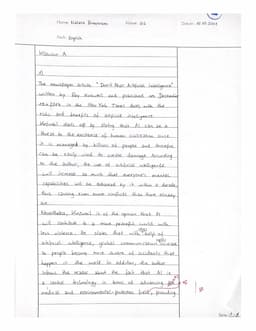 Name: Klasse: Q2 Datum:
Fach: English
Version A
1)
The newspaper article "Don't Fear Artificial Intelligence"
written by Ray Kurzweil and published on December
in the New York Times deals with the
risks and benefits of artificial intelligence.
Kurzweil starts off by stating that AI can be a
threat to the existence of human civilization since
it is managed by billions of people and therefore
can be easily used to create damage. According
to the author, the use of artificial intelligence
will increase so much that everyone's mental
capabilities will be enhanced by it within a decade,
thus causing even more conflicts than there already
are.
Nevertheless, Kurzweil is of the opinion that AI
will contribute to a more peaceful world with
less violence. He states that with help of
artificial intelligence, global communication increase
to people become more aware of incidents that
happen in the world. In addition, the author
shows the reader about the fact that AI is
a useful technology in terms of advancing
medical and environmental , providing